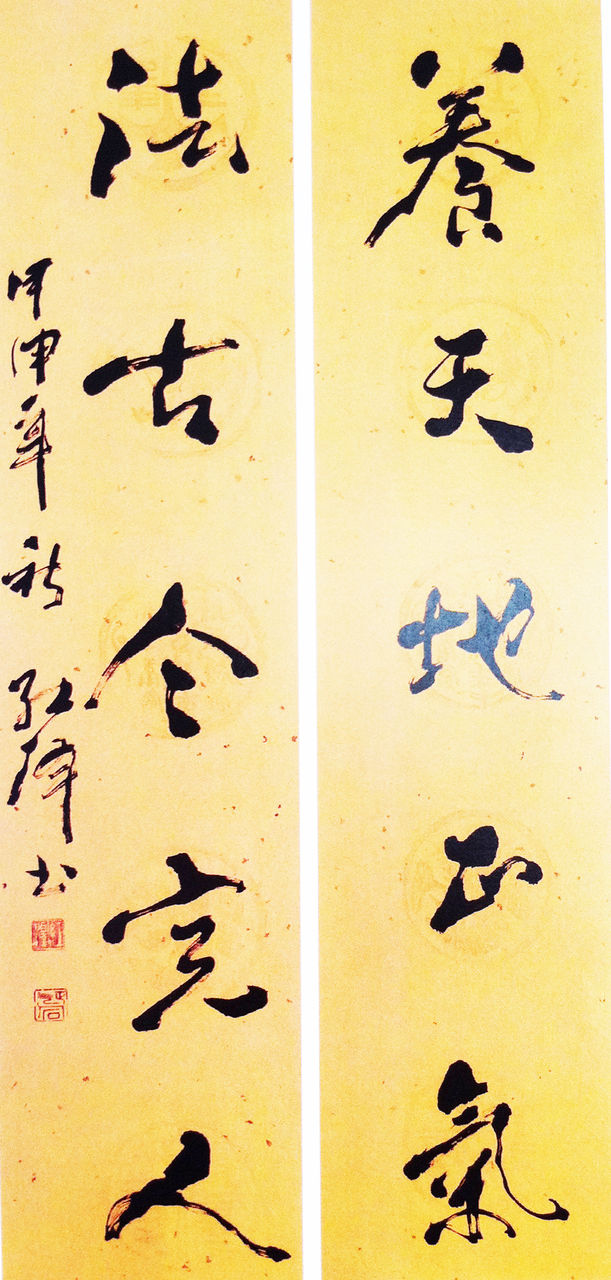 養天地正氣
法古今完人
甲申年秋 书